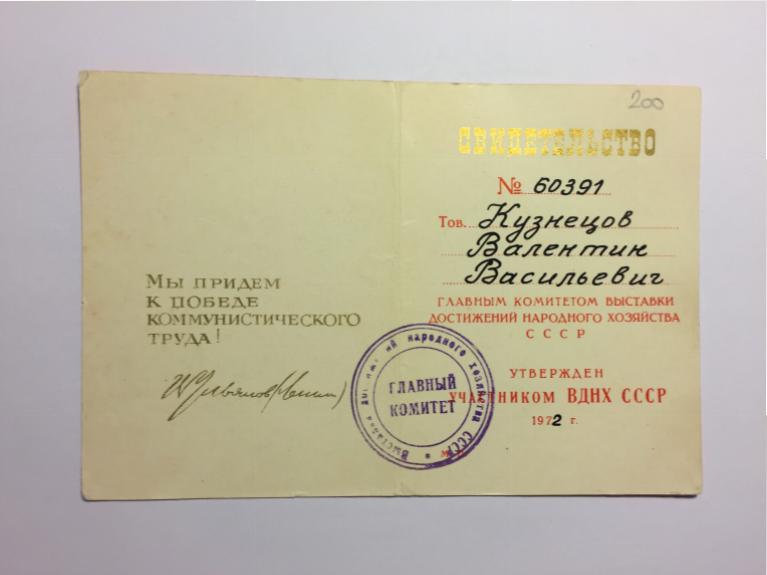 Мы придем
к победе
коммунистического
труда!
200
СВИДЕТЕЛЬСТВО
№ 60391
Тов. Кузнецов
Валентин
Васильевич
ГЛАВНЫМ КОМИТЕТОМ ВЫСТАВКИ
ДОСТИЖЕНИЙ НАРОДНОГО ХОЗЯЙСТВА
СССР
УТВЕРЖДЕН
УЧАСТНИКОМ ВДНХ СССР
1972 г.
Выставка народного хозяйства СССР
ГЛАВНЫЙ
КОМИТЕТ